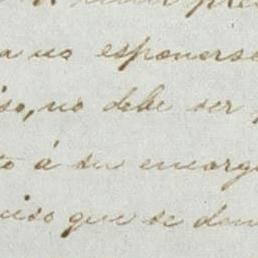 a no esponerse
iso, no debe ser
to á su encargo
uiso que se den